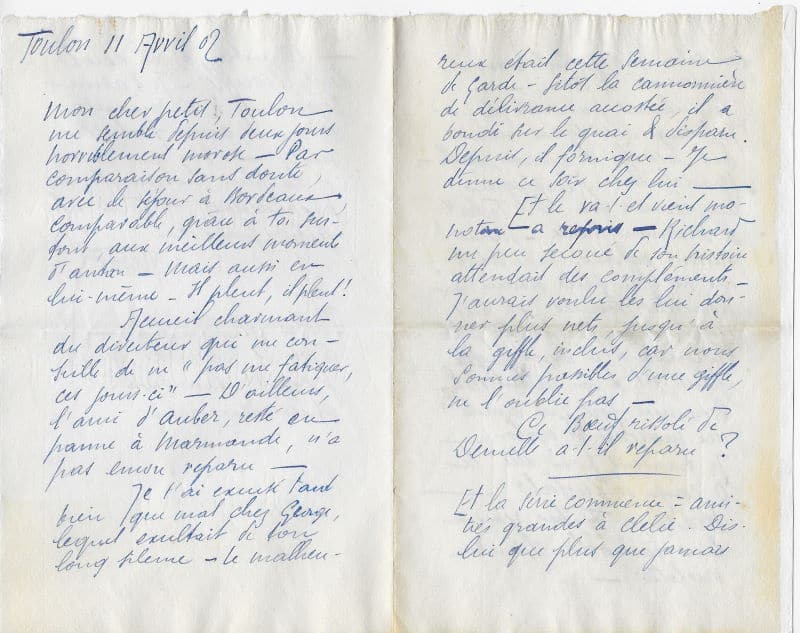 Toulon 11 Avril 02
Mon cher petit, Toulon
me semble depuis deux jours
horriblement morose — Par
comparaison sans doute,
avec le séjour à Bordeaux,
comparable, grâce à toi sur-
tout, aux meilleurs moments
d'antan — Mais aussi en
lui-même — Il pleut, il pleut !
Accueil charmant
du directeur qui me con-
seille de ne " pas me fatiguer,
ces jours-ci" — D'ailleurs,
l'ami d'Auber, resté en
panne à Marmande, n'a
pas encore reparu —
Je t'ai excusé tant
bien que mal chez George,
lequel exultait de ton
long — le malheu-
reux était cette semaine
de garde — Sitôt la cannonière
de délivrance accostée, il a
bondi sur le quai & disparu.
Depuis, il fornique — Je
dîne ce soir chez lui —
Et le va-t-et vient mo-
notone a repris — Richard
un peu secoué de son histoire
attendait des compléments —
J'aurais voulu les lui don-
ner plus nets, jusqu'à
la giffle, inclus, car nous
sommes passibles d'une giffle,
ne l'oublie pas —
Ce Boeuf rissolé de
a-t-il reparu ?
Et la série commence = ami-
tiés grandes à Clélie. Dis-
lui que plus que jamais